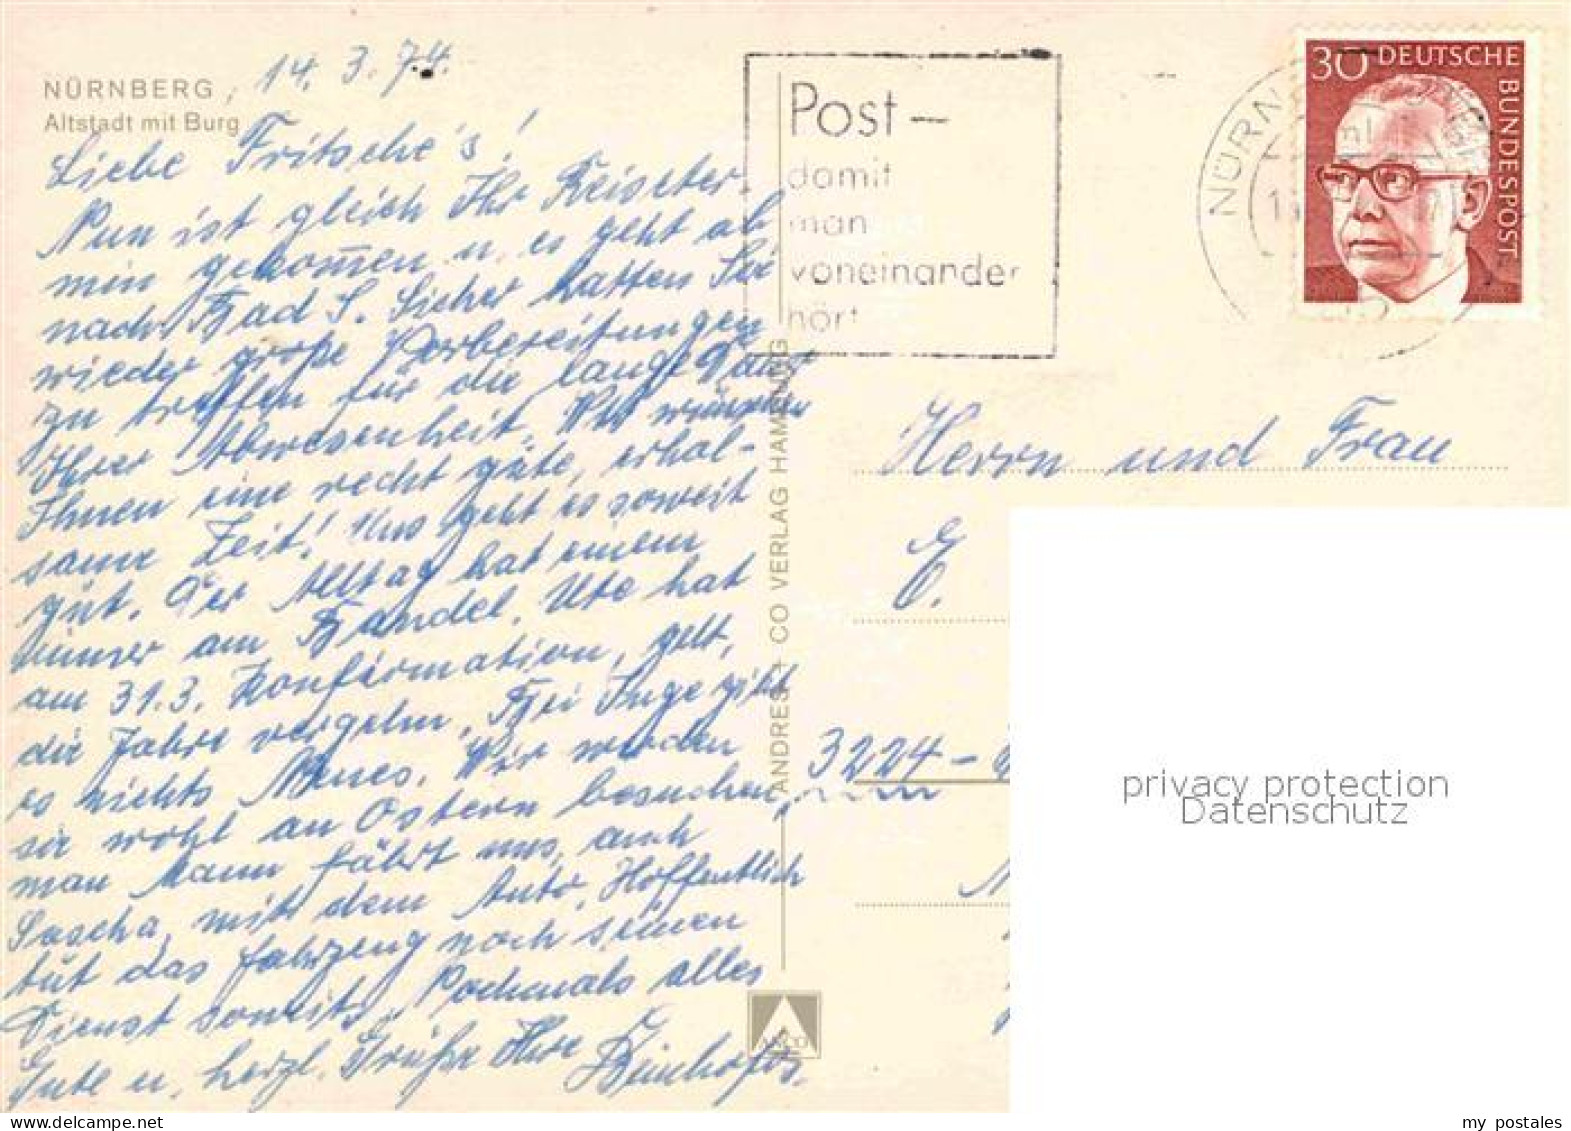 NÜRNBERG, 14.3.74.
Altstadt mit Burg
Liebe Fritsche's!
Nun ist gleich Ihr Reiseter-
min gekommen u. es geht ab
nach Bad S. Sicher hatten Sie
wieder große Vorbereitungen
zu treffen für die lange Dauer
Ihrer Abwesenheit. Wir wünschen
Ihnen eine recht gute, erhol-
same Zeit! Uns geht es soweit
gut. Der Alltag hat einem
immer am Bandel. Ute hat
am 31.3. Konfirmation, gelt,
die Jahre vergehn. Bei Inge gibt
es nichts Neues. Wir werden
sie wohl an Ostern besuchen,
man Mann fährt uns, auch
Sascha, mit dem Auto. Hoffentlich
tut das Fahrzeug noch seinen
Dienst soweit. Nochmals alles
Gute u. herzl. Grüße Ihre
ANDRES + CO VERLAG HAMBURG
ANCO
Post –
damit
man
voneinander
hört
NÜRN
30 DEUTSCHE
BUNDESPOST
Herrn und Frau
E.
3224 –
privacy protection
Datenschutz
my postales